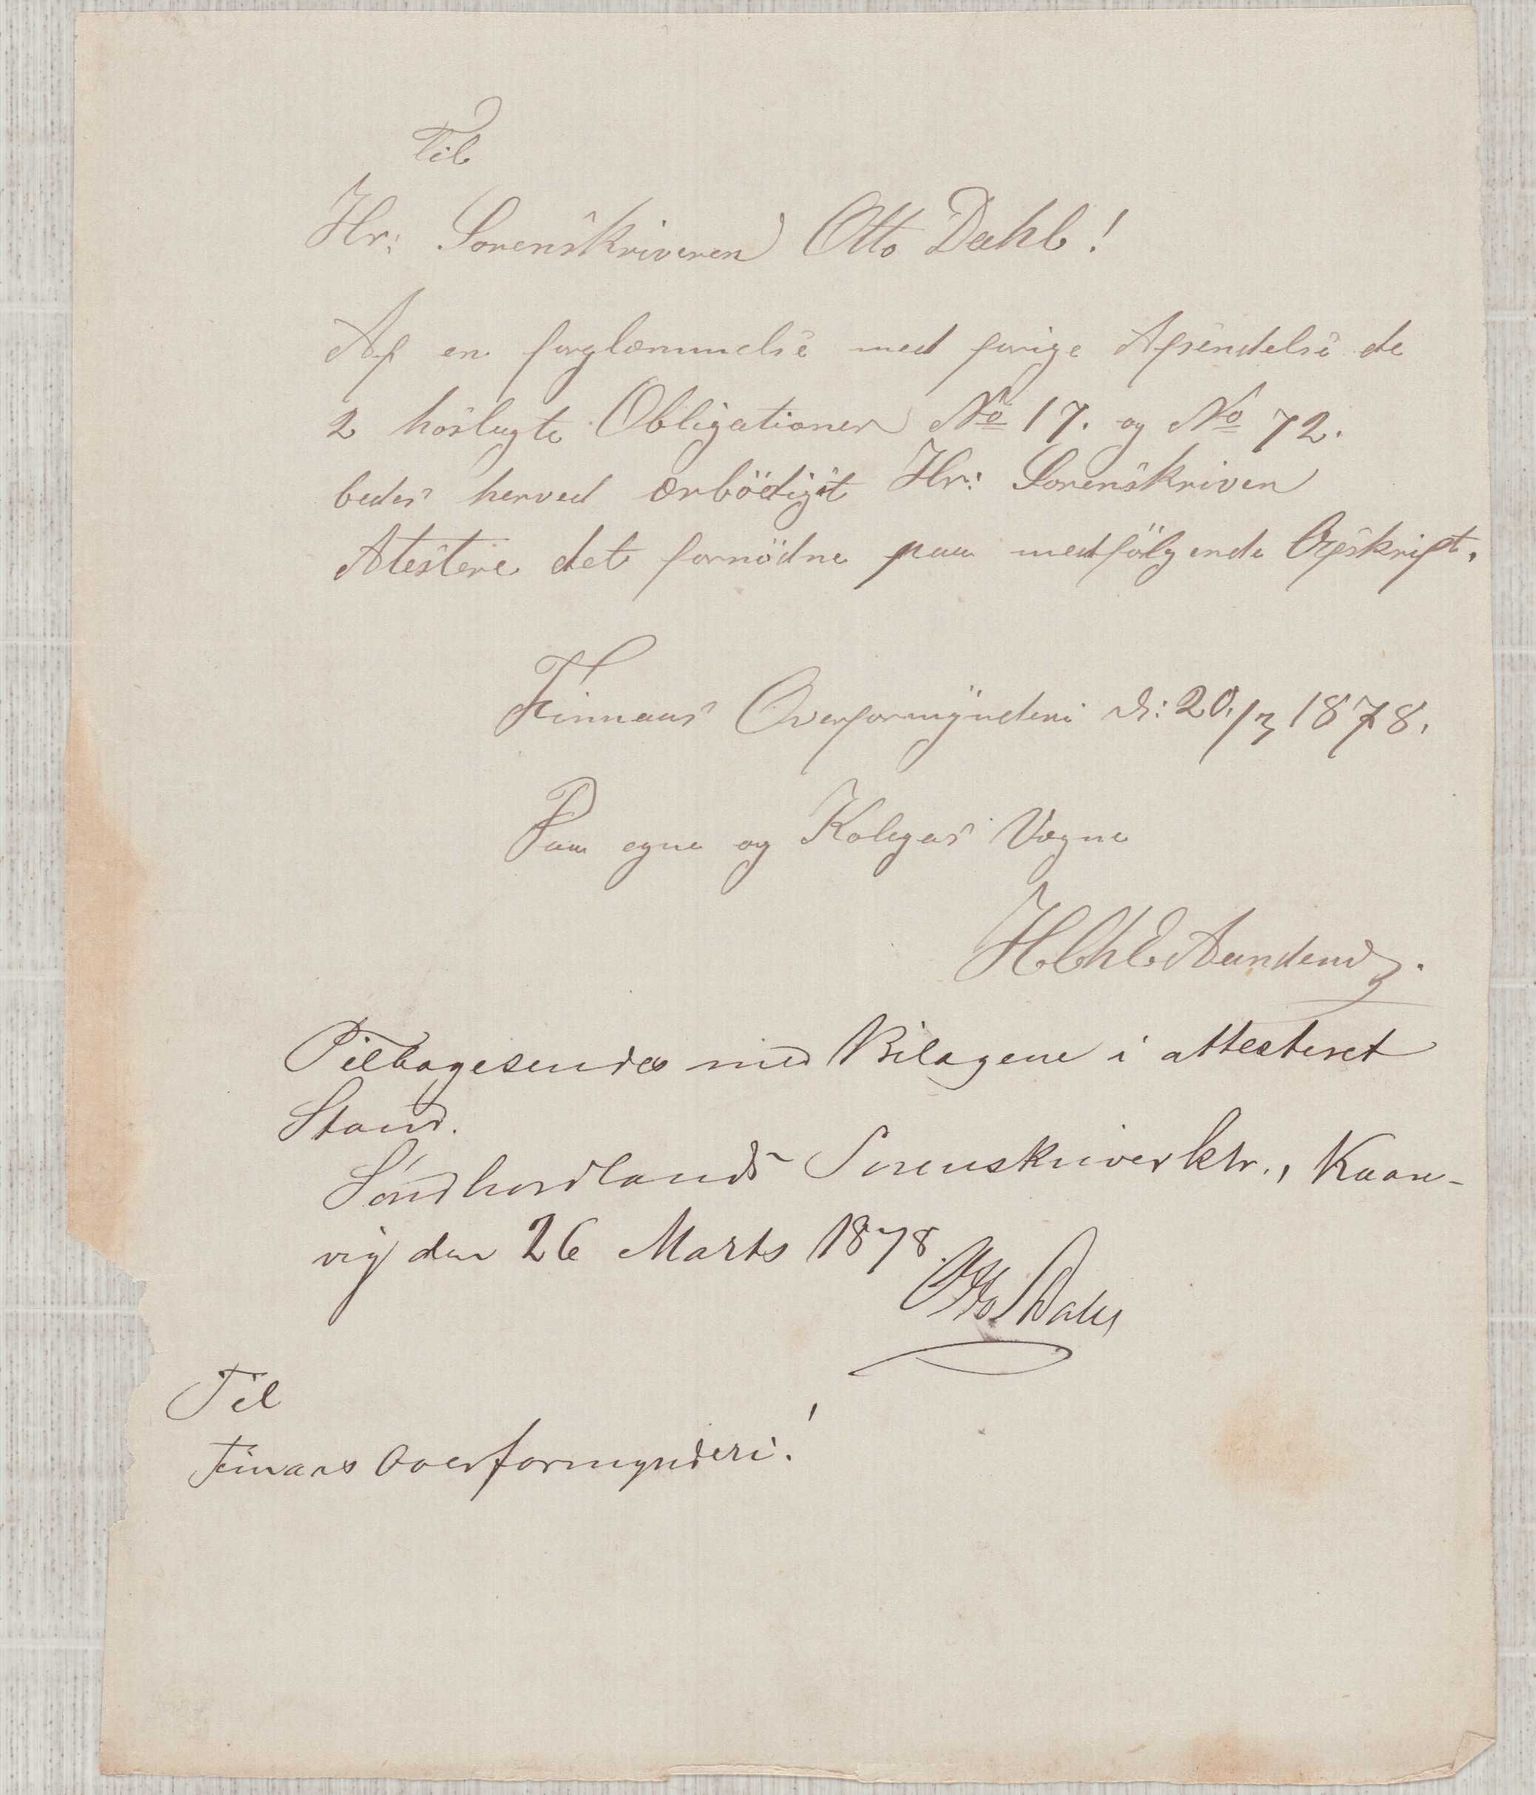 Til
Hr: Sorenskriveren Otto Dahl!
Af en forglæmmelse med forige Afsendelse de
2 hoslagte Obligationer No 17. og No 72.
bedes herved ærbödigst Hr: Sorenskriven
Atestere det fornödne paa medfölgende Opskrift.
Finnaas Overformÿnderi d: 20/3 1878.
Paa egne og Kolegas Vegne
Tilbagesendes med Bilagene i attesteret
Stand.
Söndhordlands Sorenskriverktr., Kaar-
vig den 26 Marts 1878.
Otto Dahl
Til
Finaas Overformynderi!